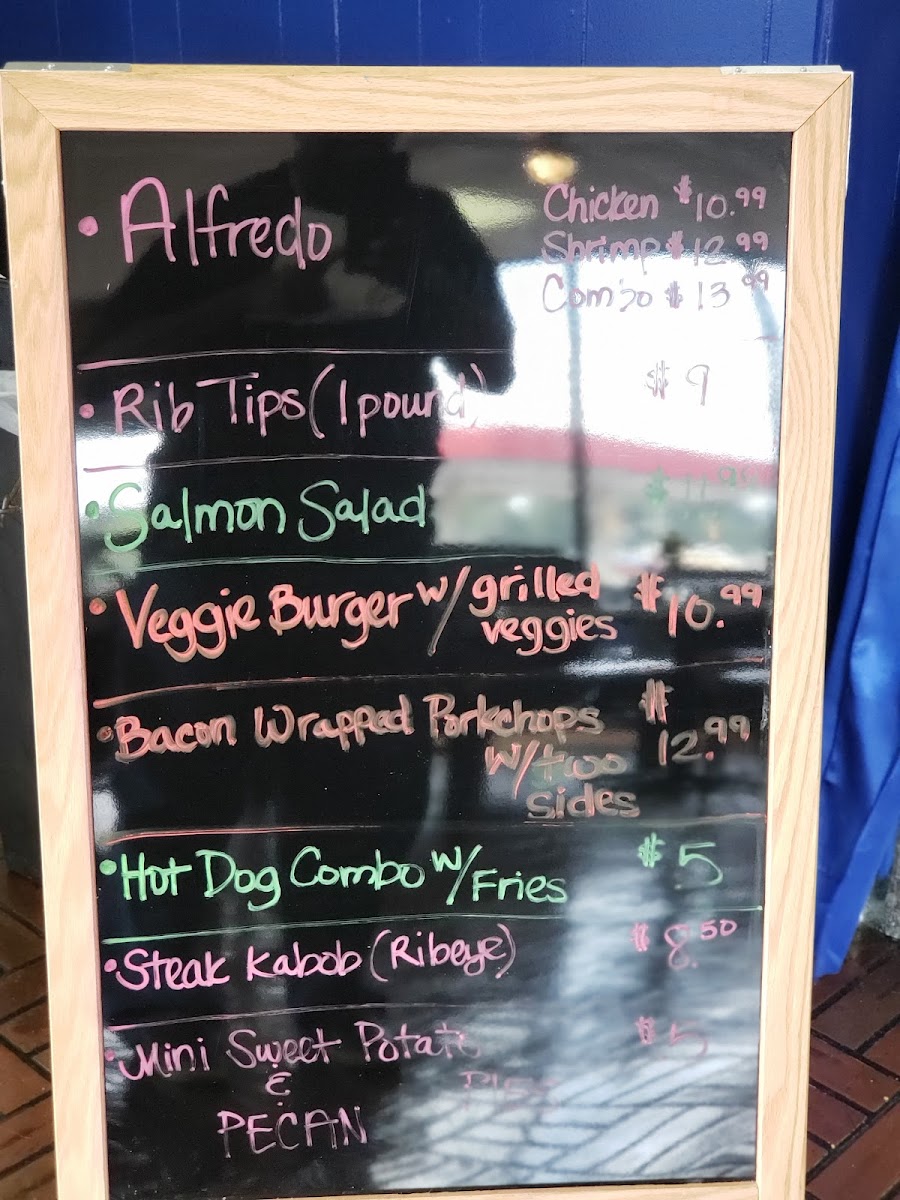 • Alfredo
Chicken $10.99
Shrimp $12.99
Combo $13.99
• Rib Tips (1 pound) $9
• Salmon Salad $11.99
• Veggie Burger w/ grilled veggies $10.99
• Bacon Wrapped Porkchops $12.99
w/ two
sides
• Hot Dog Combo w/ Fries $5
• Steak Kabob (Ribeye) $8.50
• Mini Sweet Potato $5
& Pies
PECAN